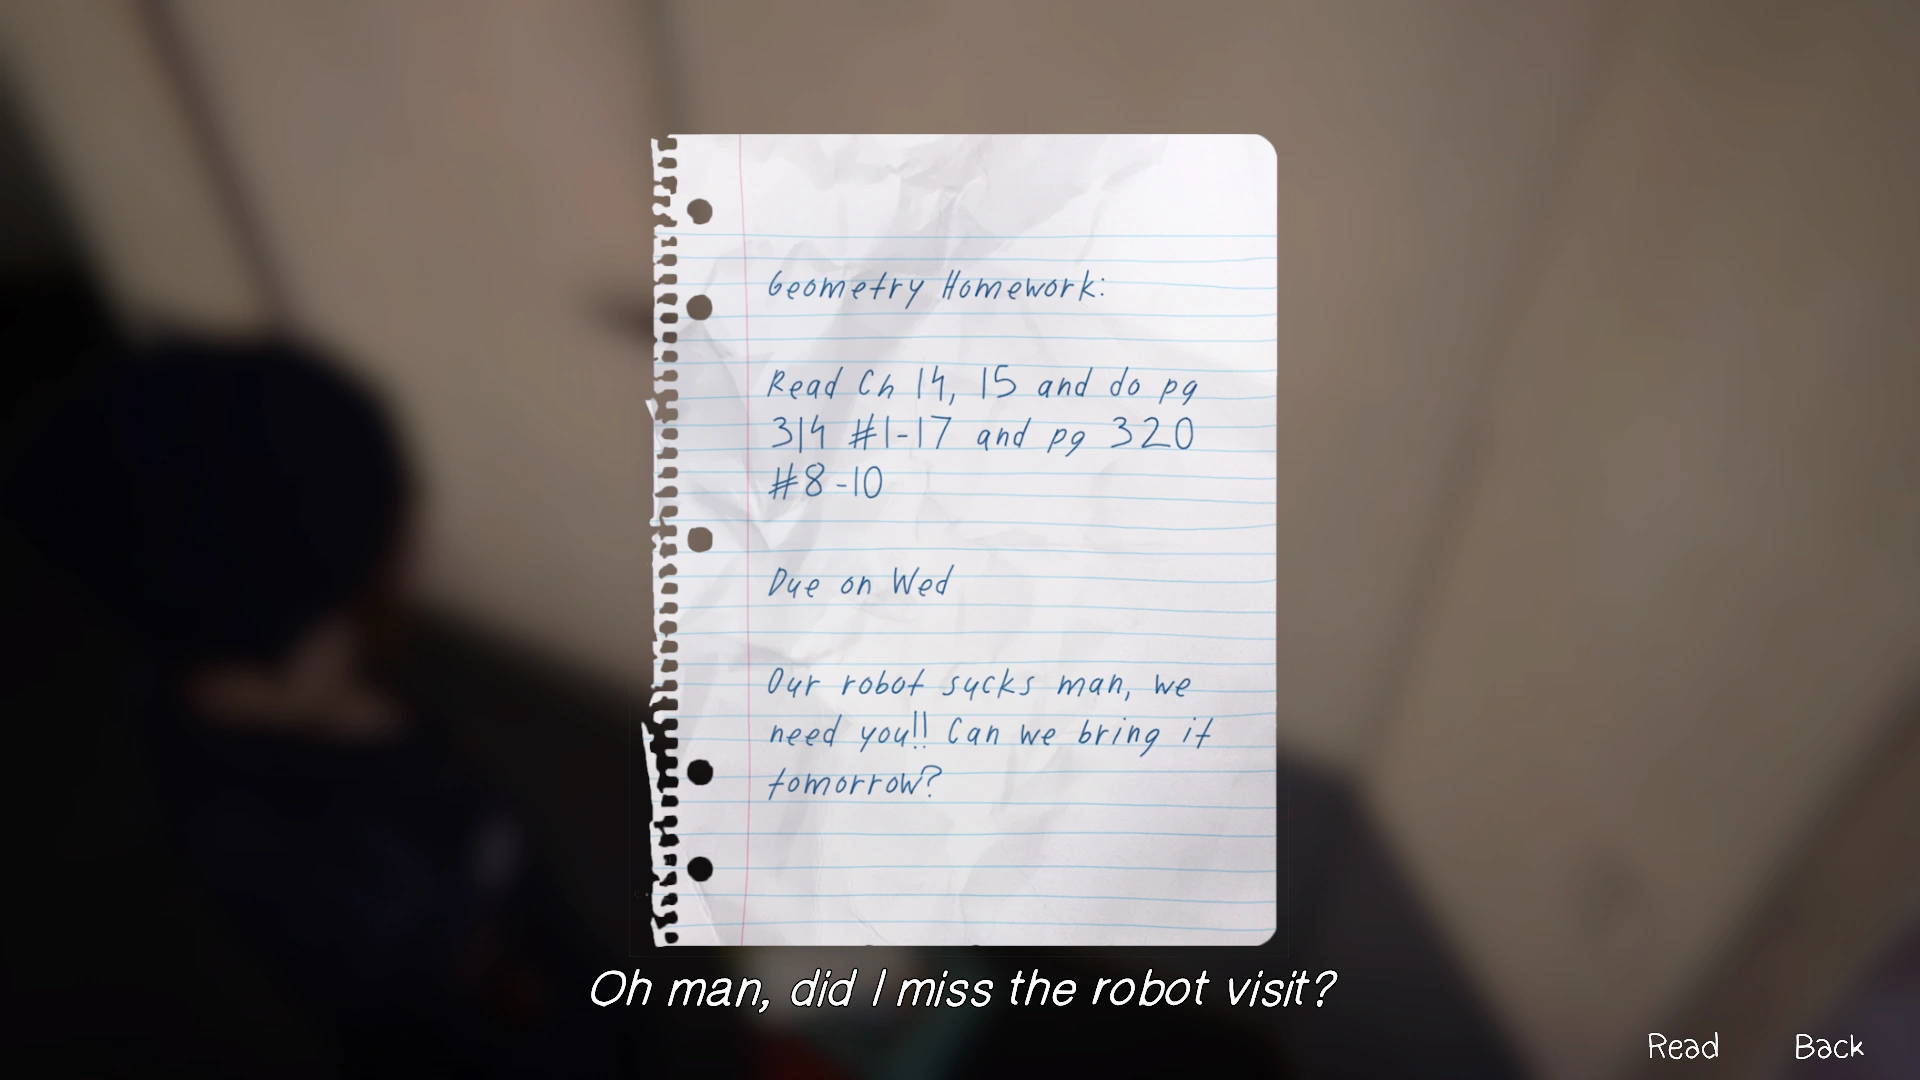 Geometry Homework:
Read Ch 14, 15 and do pg
314 #1-17 and pg 320
#8-10
Due on Wed
Our robot sucks man, we
need you!! Can we bring it
tomorrow?
Oh man, did I miss the robot visit?
Read
Back